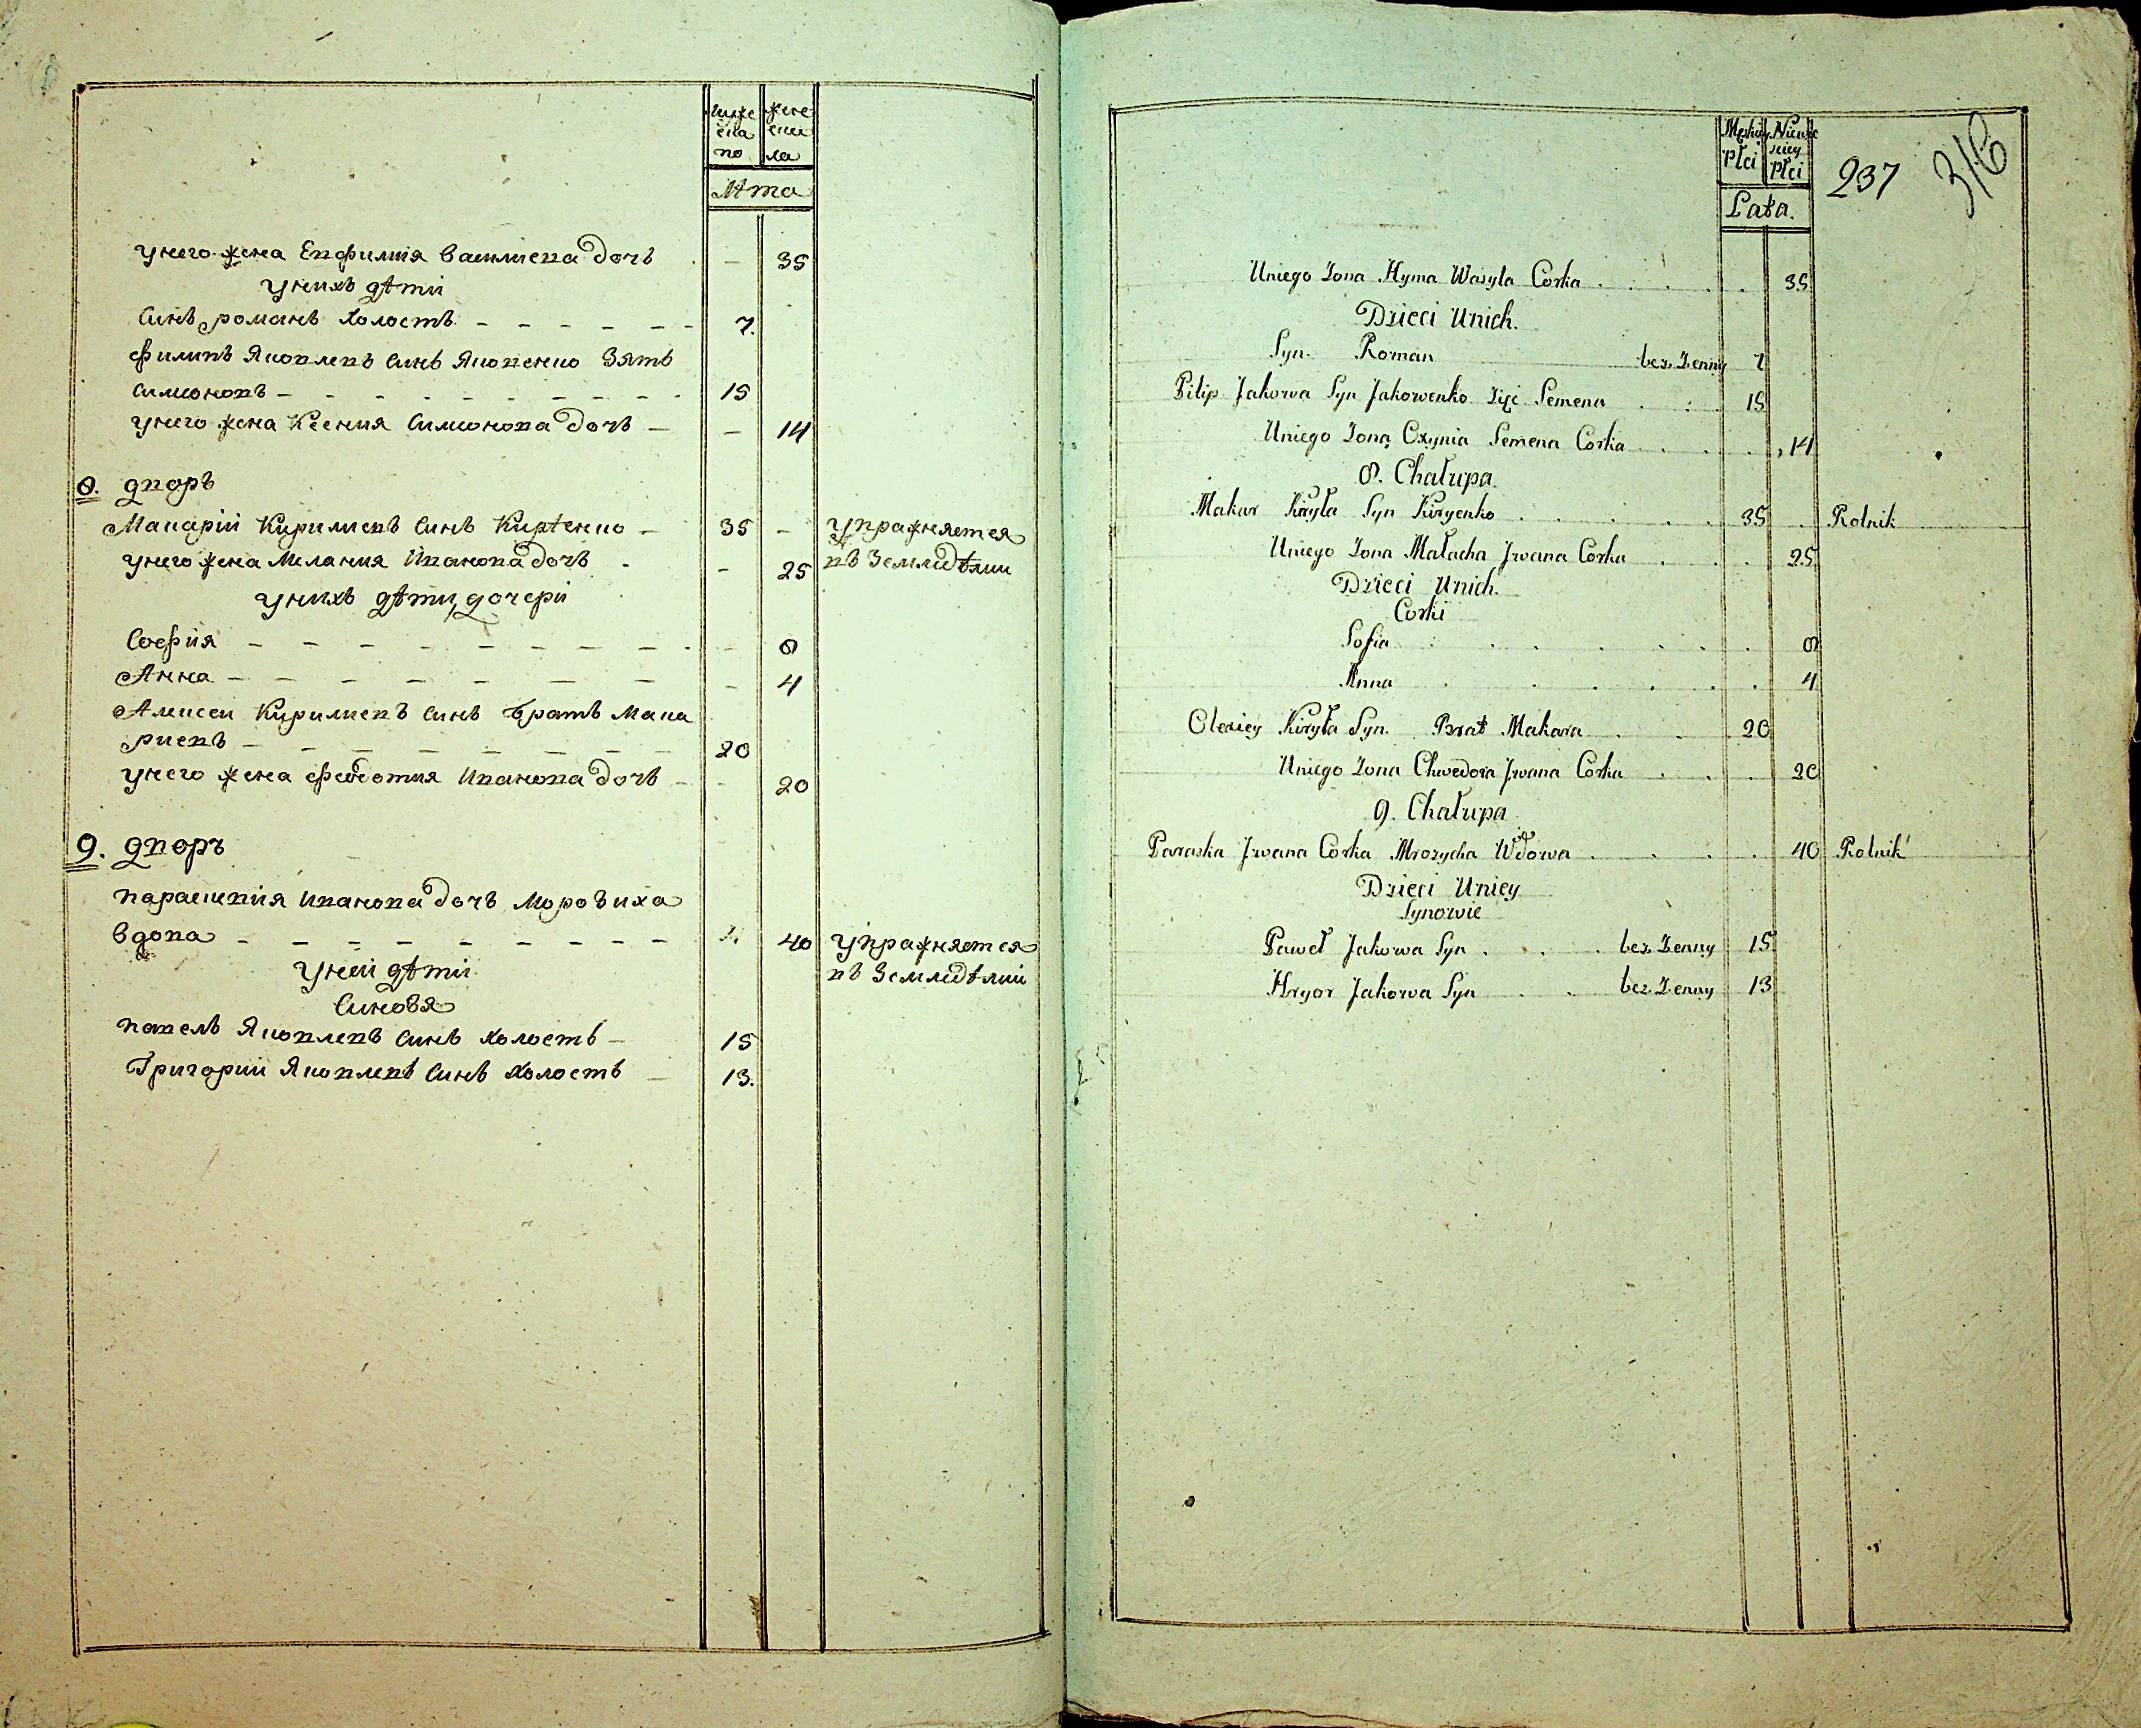 муже ска по
жене ска ла
Лѣта
у него жена Евфимия Василиева дочь - 35
у нихъ дѣти
Синъ романъ холостъ 7.
филипъ Яковлевъ Синъ Яковенко Зять
Симоновъ 15
у него жена Ксения Симонова дочь - 14
8. дворъ
Макарий Кирилиевъ Синъ Кирѣенко 35 - упражняется
у него жена Мелания Иванова дочь - 25 въ Земледѣлии
у нихъ дѣти, дочери
София - 8
Анна - 4
Алексеи Кирилиевъ Синъ братъ Мака
риевъ 20
у него жена Федотия Иванова дочь - 20
9. дворъ
параскивия Иванова дочь Морозиха
вдова 40 упражняется
у неи дѣти въ Земледѣлии
Синовя
павелъ Яковлевъ Синъ холостъ 15
Григорий Яковлевъ Синъ холостъ 13.
Męzkiey Płci
Niewieściey Płci
237 316
Lata.
U niego Zona Hyma Wasyla Corka 35
Dzieci U nich.
Syn. Roman bez Zenny 7
Pilip Jakowa Syn Jakowenko Zięć Semena 15
U niego Zona Oxynia Semena Corka 14
8. Chałupa.
Makar Kiryła Syn Kiryenko 35 Rolnik
U niego Zona Małacha Jwana Corka 25
Dzieci U nich.
Corki
Sofia 8
Anna 4
Olexiey Kiryła Syn. Brat Makara 20
U niego Zona Chwedora Jwana Corka 20
9. Chałupa
Paraska Jwana Corka Mrozycha Wdowa 40 Rolnik
Dzieci U niey
Synowie
Paweł Jakowa Syn bez Zenny 15
Hryor Jakowa Syn bez Zenny 13